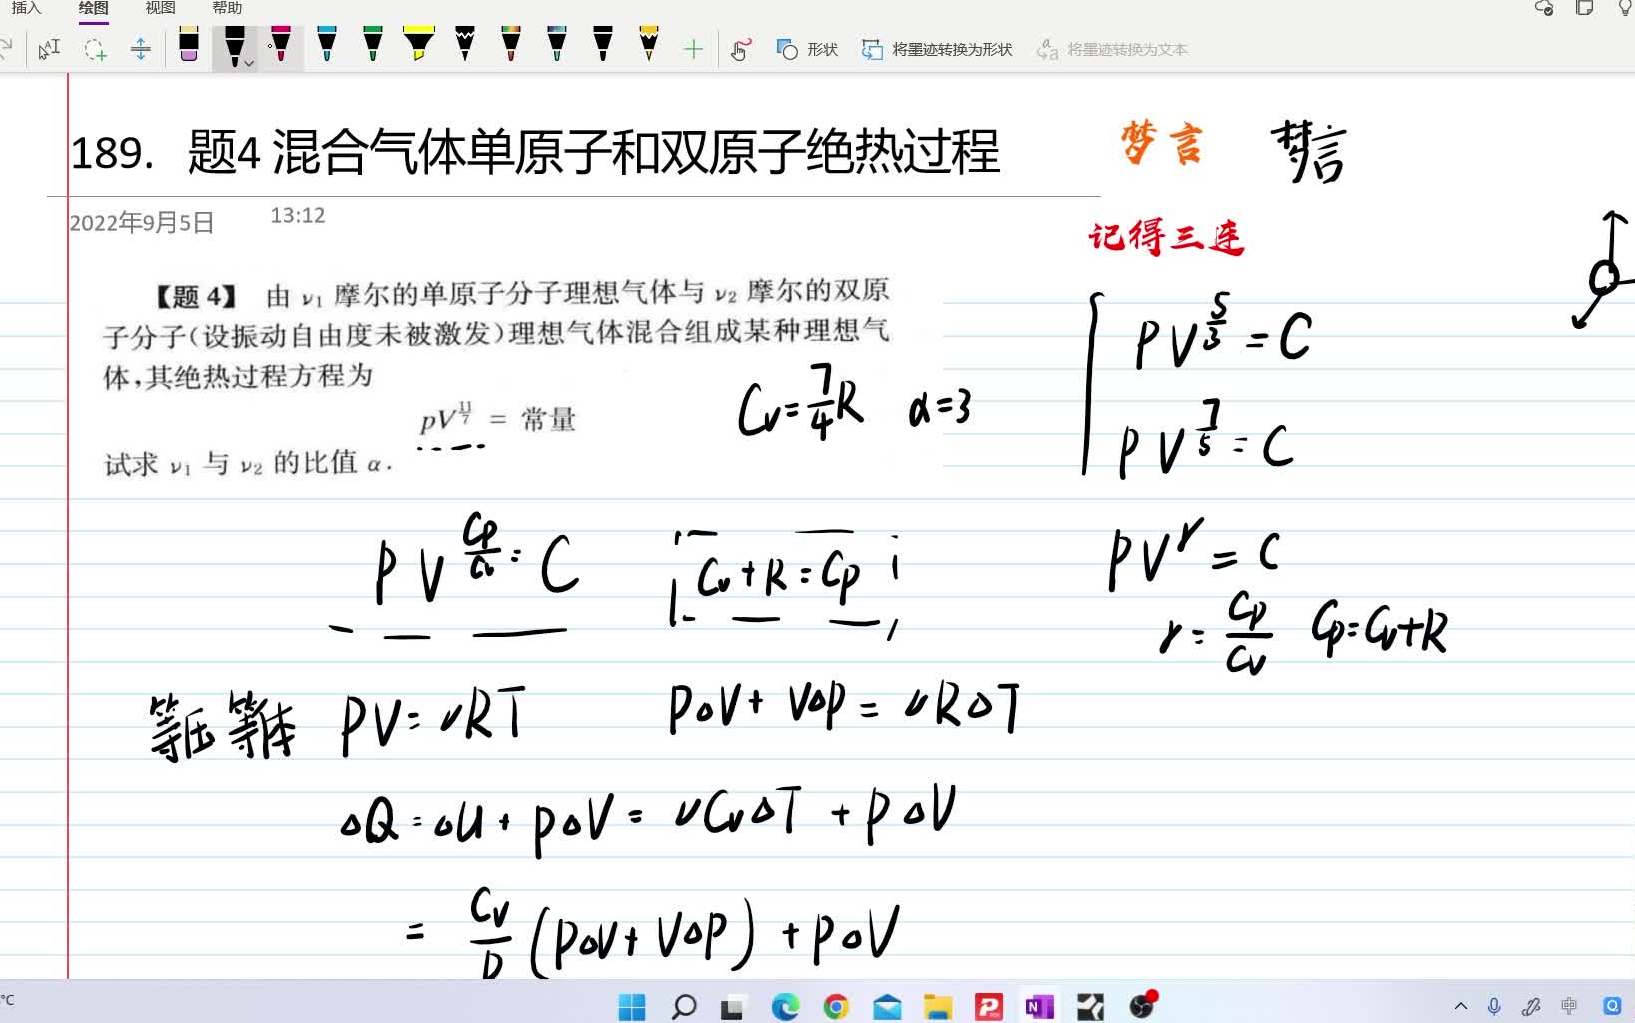 插入 绘图 视图 帮助
形状 将墨迹转换为形状 将墨迹转换为文本
189. 题4 混合气体单原子和双原子绝热过程
梦言 梦言
2022年9月5日 13:12
记得三连
【题 4】 由 ν₁ 摩尔的单原子分子理想气体与 ν₂ 摩尔的双原
子分子(设振动自由度未被激发)理想气体混合组成某种理想气
体,其绝热过程方程为
pV^{11/7} = 常量
试求 ν₁ 与 ν₂ 的比值 α.
Cv=7/4R α=3
PV^{5/3}=C
PV^{7/5}=C
PV^{Cp/Cv}=C Cv+R=Cp
PV^γ=C
γ=Cp/Cv Cp=Cv+R
等压 等体 PV=νRT P△V+V△P=νR△T
△Q=△U+P△V=νCv△T+P△V
=Cv/R(P△V+V△P)+P△V
℃
中